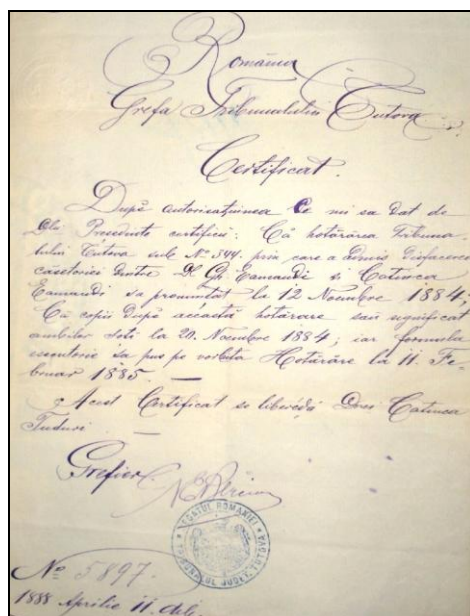 România
Grefa Tribunalului Tutova
Certificat.
După autorisațiunea ce mi sa dat de
Președinte certifică: Că hotărârea Tribuna-
lului Tutova sub Nº 544. prin care a admis disfacerea
căsătoriei dintre D. Gh. Eamandi si Catinca
Eamandi sa pronunțat la 12 Noembre 1884.
Că copii după această hotărâre sau significat
ambilor soti la 20. Noembre 1884; iar formula
esecutorie sa pus pe vorbita Hotărâre la 11. Fe-
bruar 1885. —
Acest Certificat se liberédă Dnei Catinca
Tuduri. —
Grefier
Nº 5897.
1888 Aprilie 11. dile.